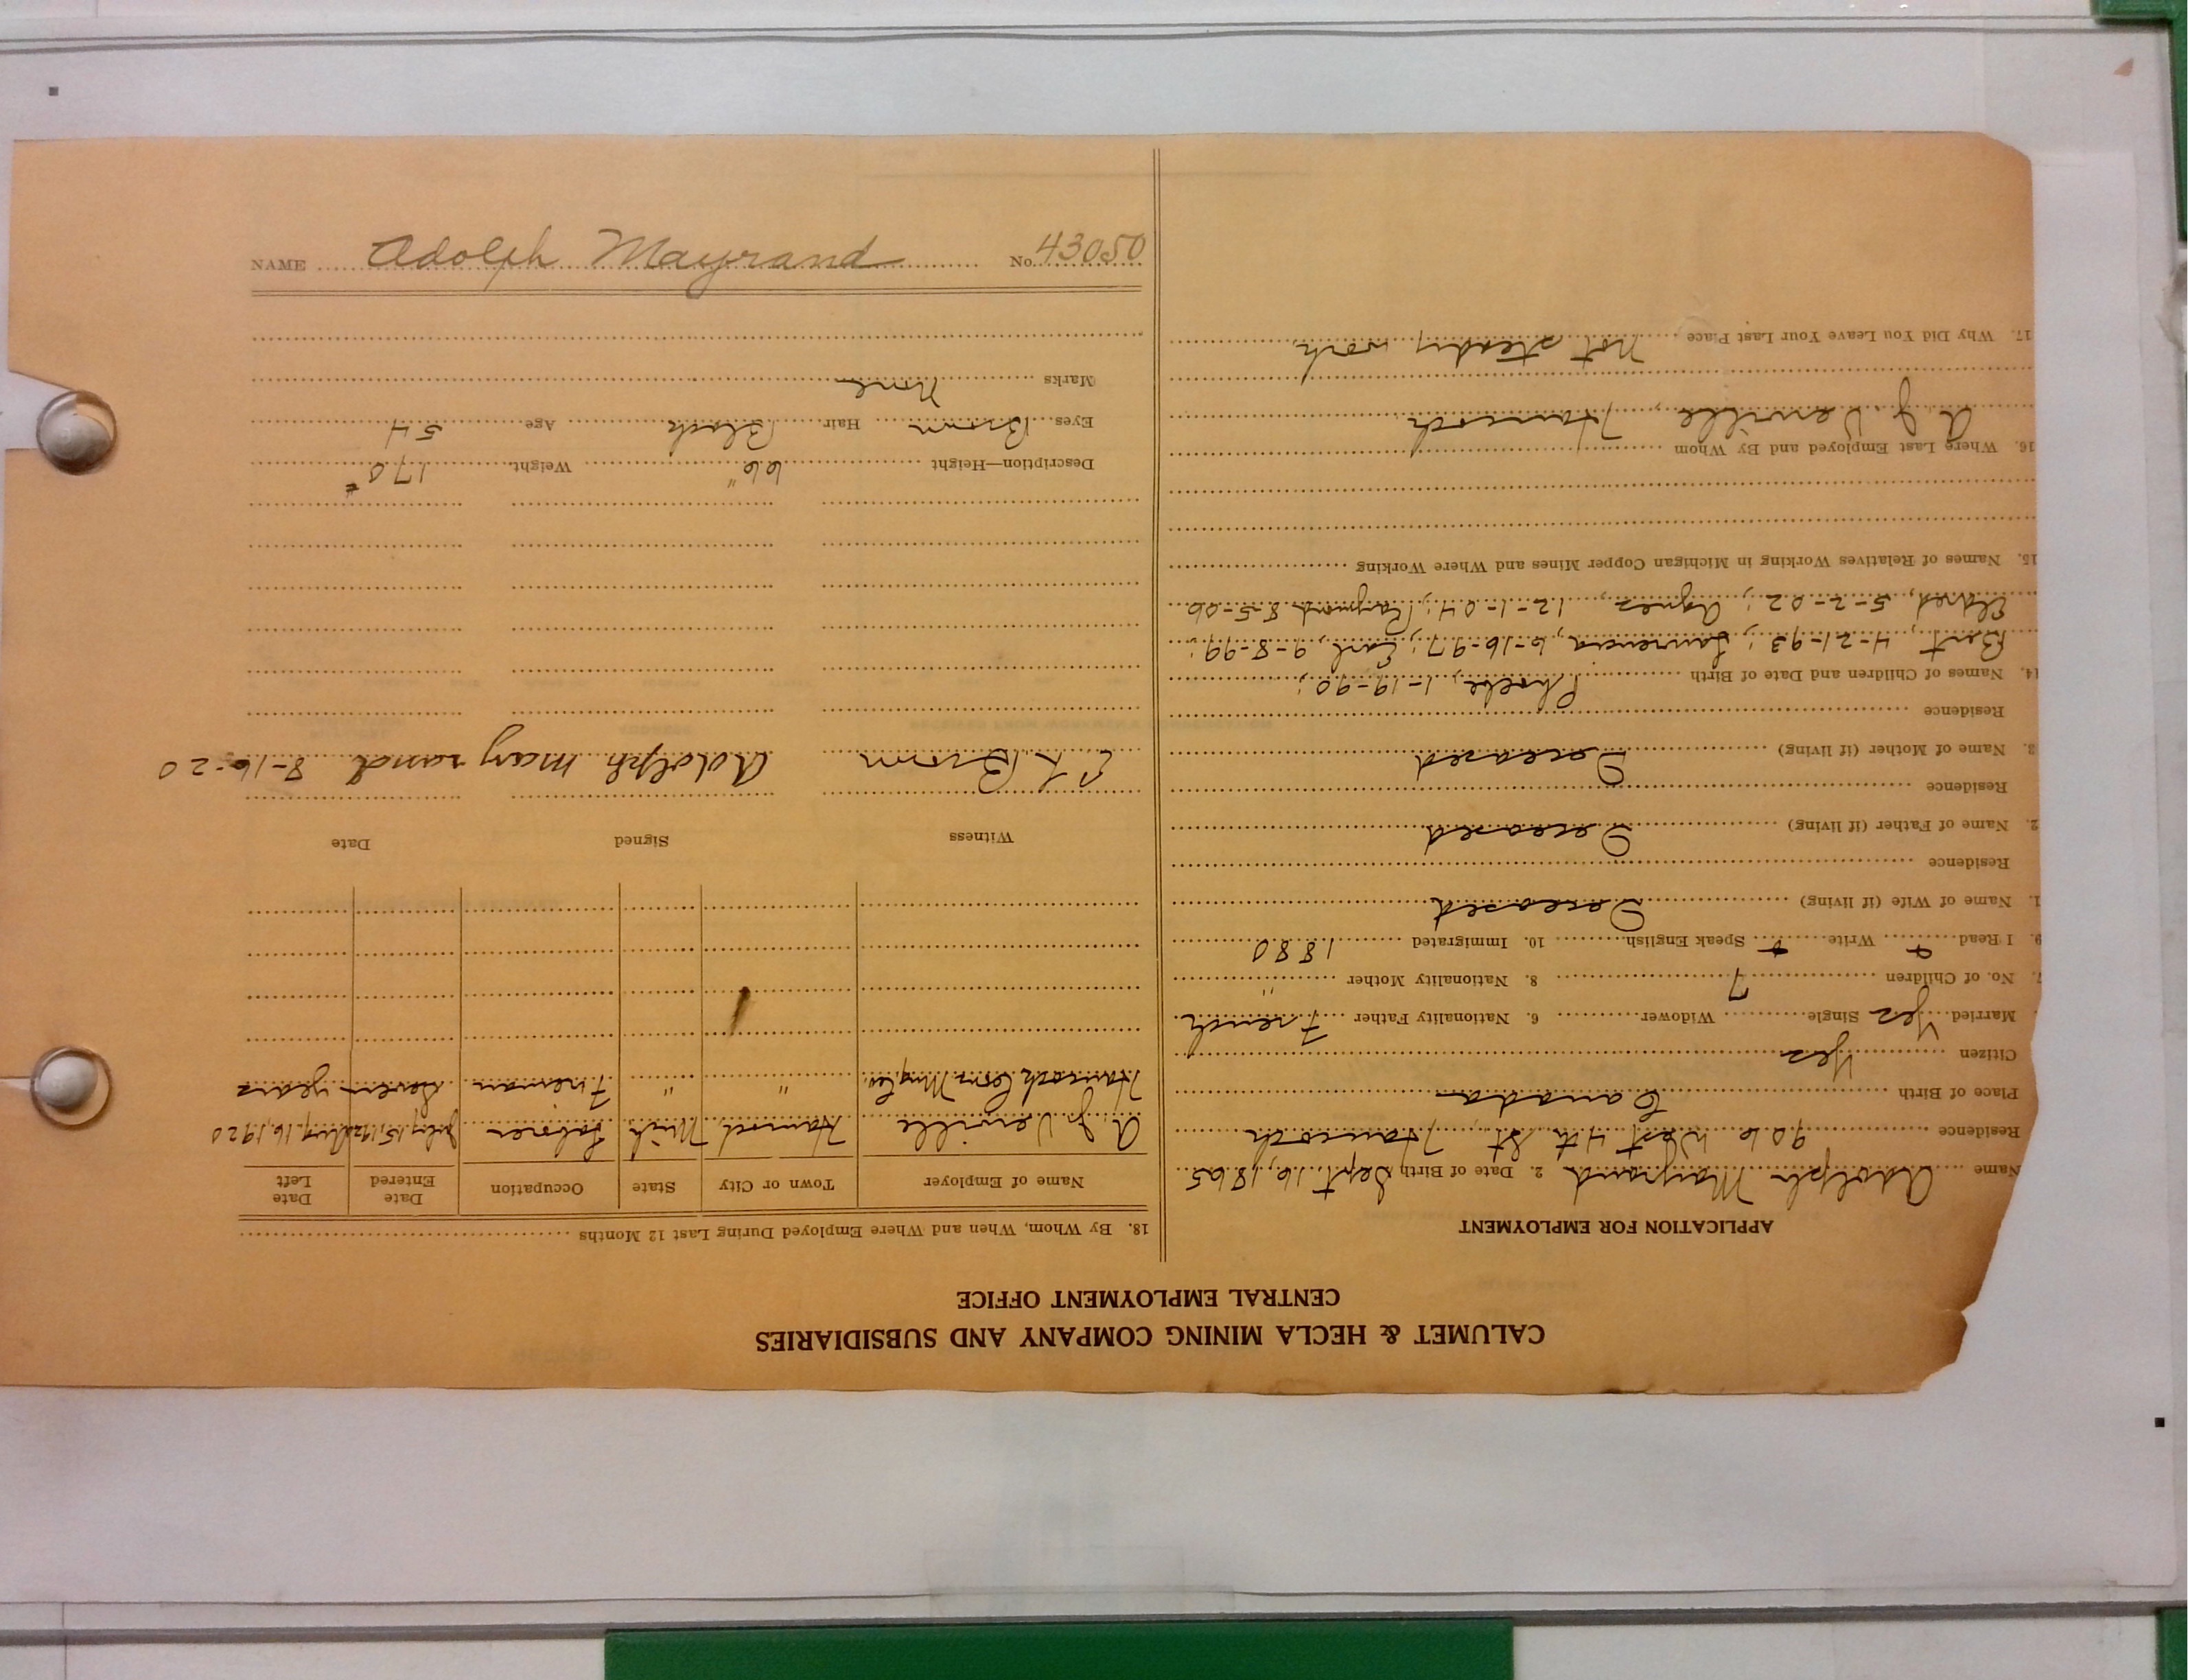 CALUMET & HECLA MINING COMPANY AND SUBSIDIARIES
CENTRAL EMPLOYMENT OFFICE
APPLICATION FOR EMPLOYMENT
Name Adolph Mayrand 2. Date of Birth Sept. 16, 1865
Residence 906 West 4th St., Hancock
Place of Birth Canada
Citizen Yes
Married Yes Single Widower 6. Nationality Father French
7. No. of Children 7 8. Nationality Mother "
9. I Read Write Speak English 10. Immigrated 1880
1. Name of Wife (if living) Deceased
Residence
2. Name of Father (if living) Deceased
Residence
3. Name of Mother (if living) Deceased
Residence
14. Names of Children and Date of Birth Phoebe, 1-19-90;
Bert, 4-21-93; Lawrence, 6-16-97; Earl, 9-8-99;
Eldred, 5-2-02; Agnes, 12-1-04; Raymond 8-5-06
15. Names of Relatives Working in Michigan Copper Mines and Where Working
16. Where Last Employed and By Whom
A. J. Verville, Hancock
17. Why Did You Leave Your Last Place Not steady work
18. By Whom, When and Where Employed During Last 12 Months
Name of Employer Town or City State Occupation Date Entered Date Left
A. J. Verville Hancock Mich. Laborer July 15, 1920 Aug. 16, 1920
Hancock Cons. Mng. Co. " " Fireman Seven years
Witness Signed Date
Brown Adolph Mayrand 8-16-20
Description—Height 66" Weight 170#
Eyes Brown Hair Black Age 54
Marks None
NAME Adolph Mayrand No. 43050